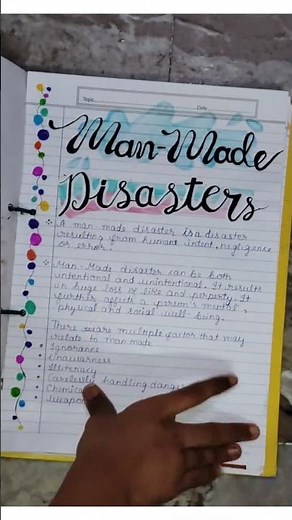 Topic
Date
Man-Made
Disasters
A man made disaster is a disaster
resulting from human intent, negligence
or error.
Man-Made disaster can be both
intentional and unintentional. It results
in huge loss of life and perperty. It
further affects a person's mental,
physical and social well-being.
There are multiple factor that may
relate to man made
Ignorance
Unawarness
Illiteracy
Carelessly handling